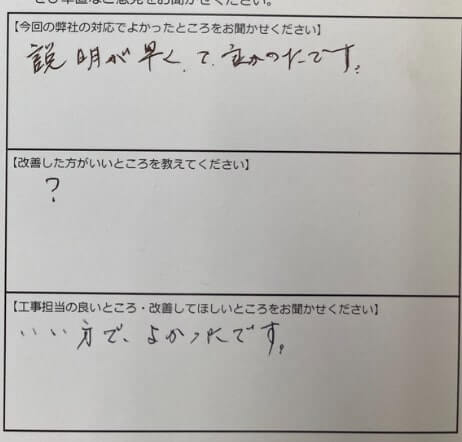 ども率直なご意見をお聞かせください。
【今回の弊社の対応でよかったところをお聞かせください】
説明が早くて、良かったです。
【改善した方がいいところを教えてください】
?
【工事担当の良いところ・改善してほしいところをお聞かせください】
いい方で、よかったです。